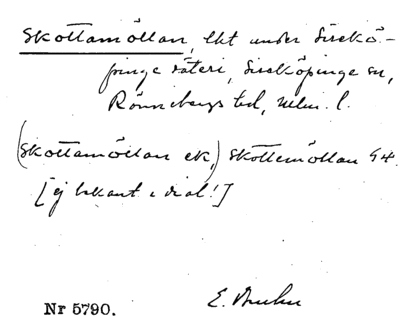 Skottamöllan, lht under Sirekö-
pinge säteri, Sireköpinge sn,
Rönnebergs hd, Malm. l.
(Skottamöllan ek,) Skottemöllan G4.
[ej bekant i dial!]
Nr 5790. E.